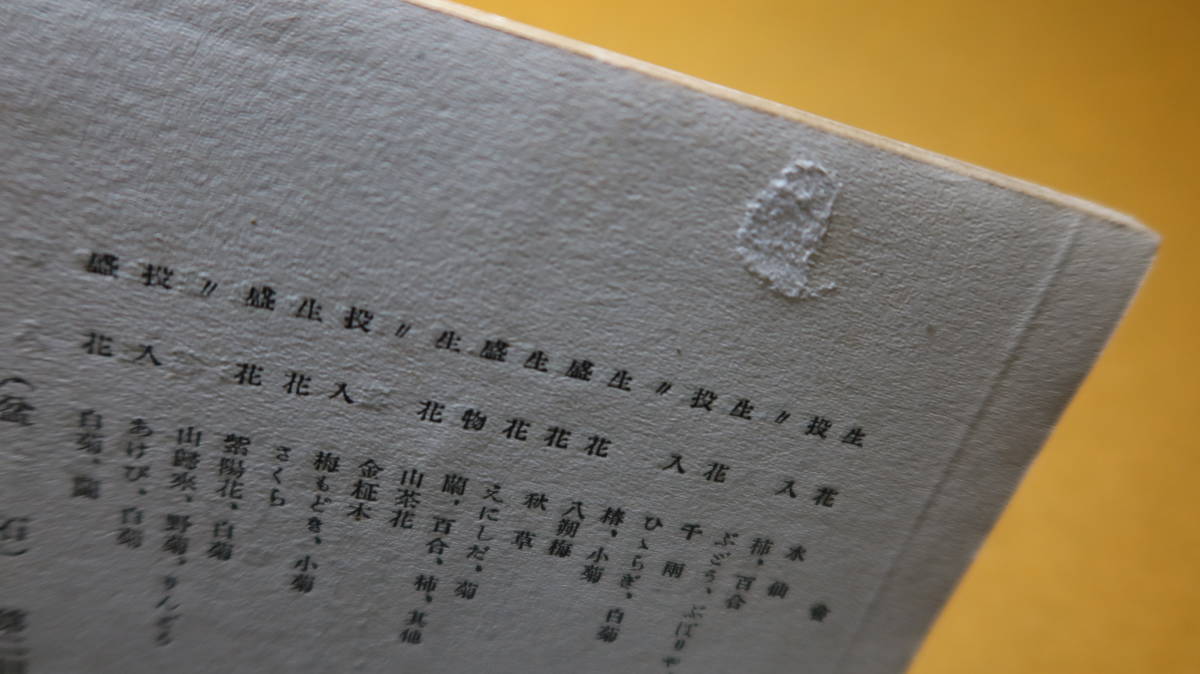 會
生花 水仙
投入 柿、百合
〃 ぶどう、ぶばりや
生花 千兩
投入 ひゝらぎ、白菊
〃 椿、小菊
生花 八朔梅
盛花 秋草
生花 えにしだ、菊
盛物 蘭、百合、柿、其他
生花 山茶花
〃 金柾木
投入 梅もどき、小菊
生花 さくら
盛花 紫陽花、白菊
〃 山歸來、野菊、りんだう
投入 あけび、白菊
盛花 白菊、蘭
（盆石）